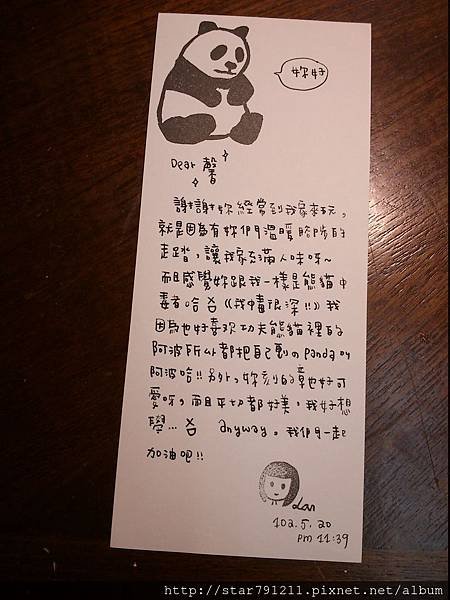 妳好
Dear 馨
謝謝妳經常到我家來玩，
就是因為有妳們溫暖腳步的
走踏，讓我家充滿人味呀~
而且感覺妳跟我一樣是熊貓中
毒者哈 《我中毒很深!!》我
因為也好喜歡功夫熊貓裡的
阿波所以都把自己刻的panda叫
阿波哈!! 另外，妳刻的章也好可
愛呀，而且平切都好美，我好想
學... anyway。我們一起
加油吧!!
Lan
102.5.20
PM 11:39
http://star791211.pixnet.net/album